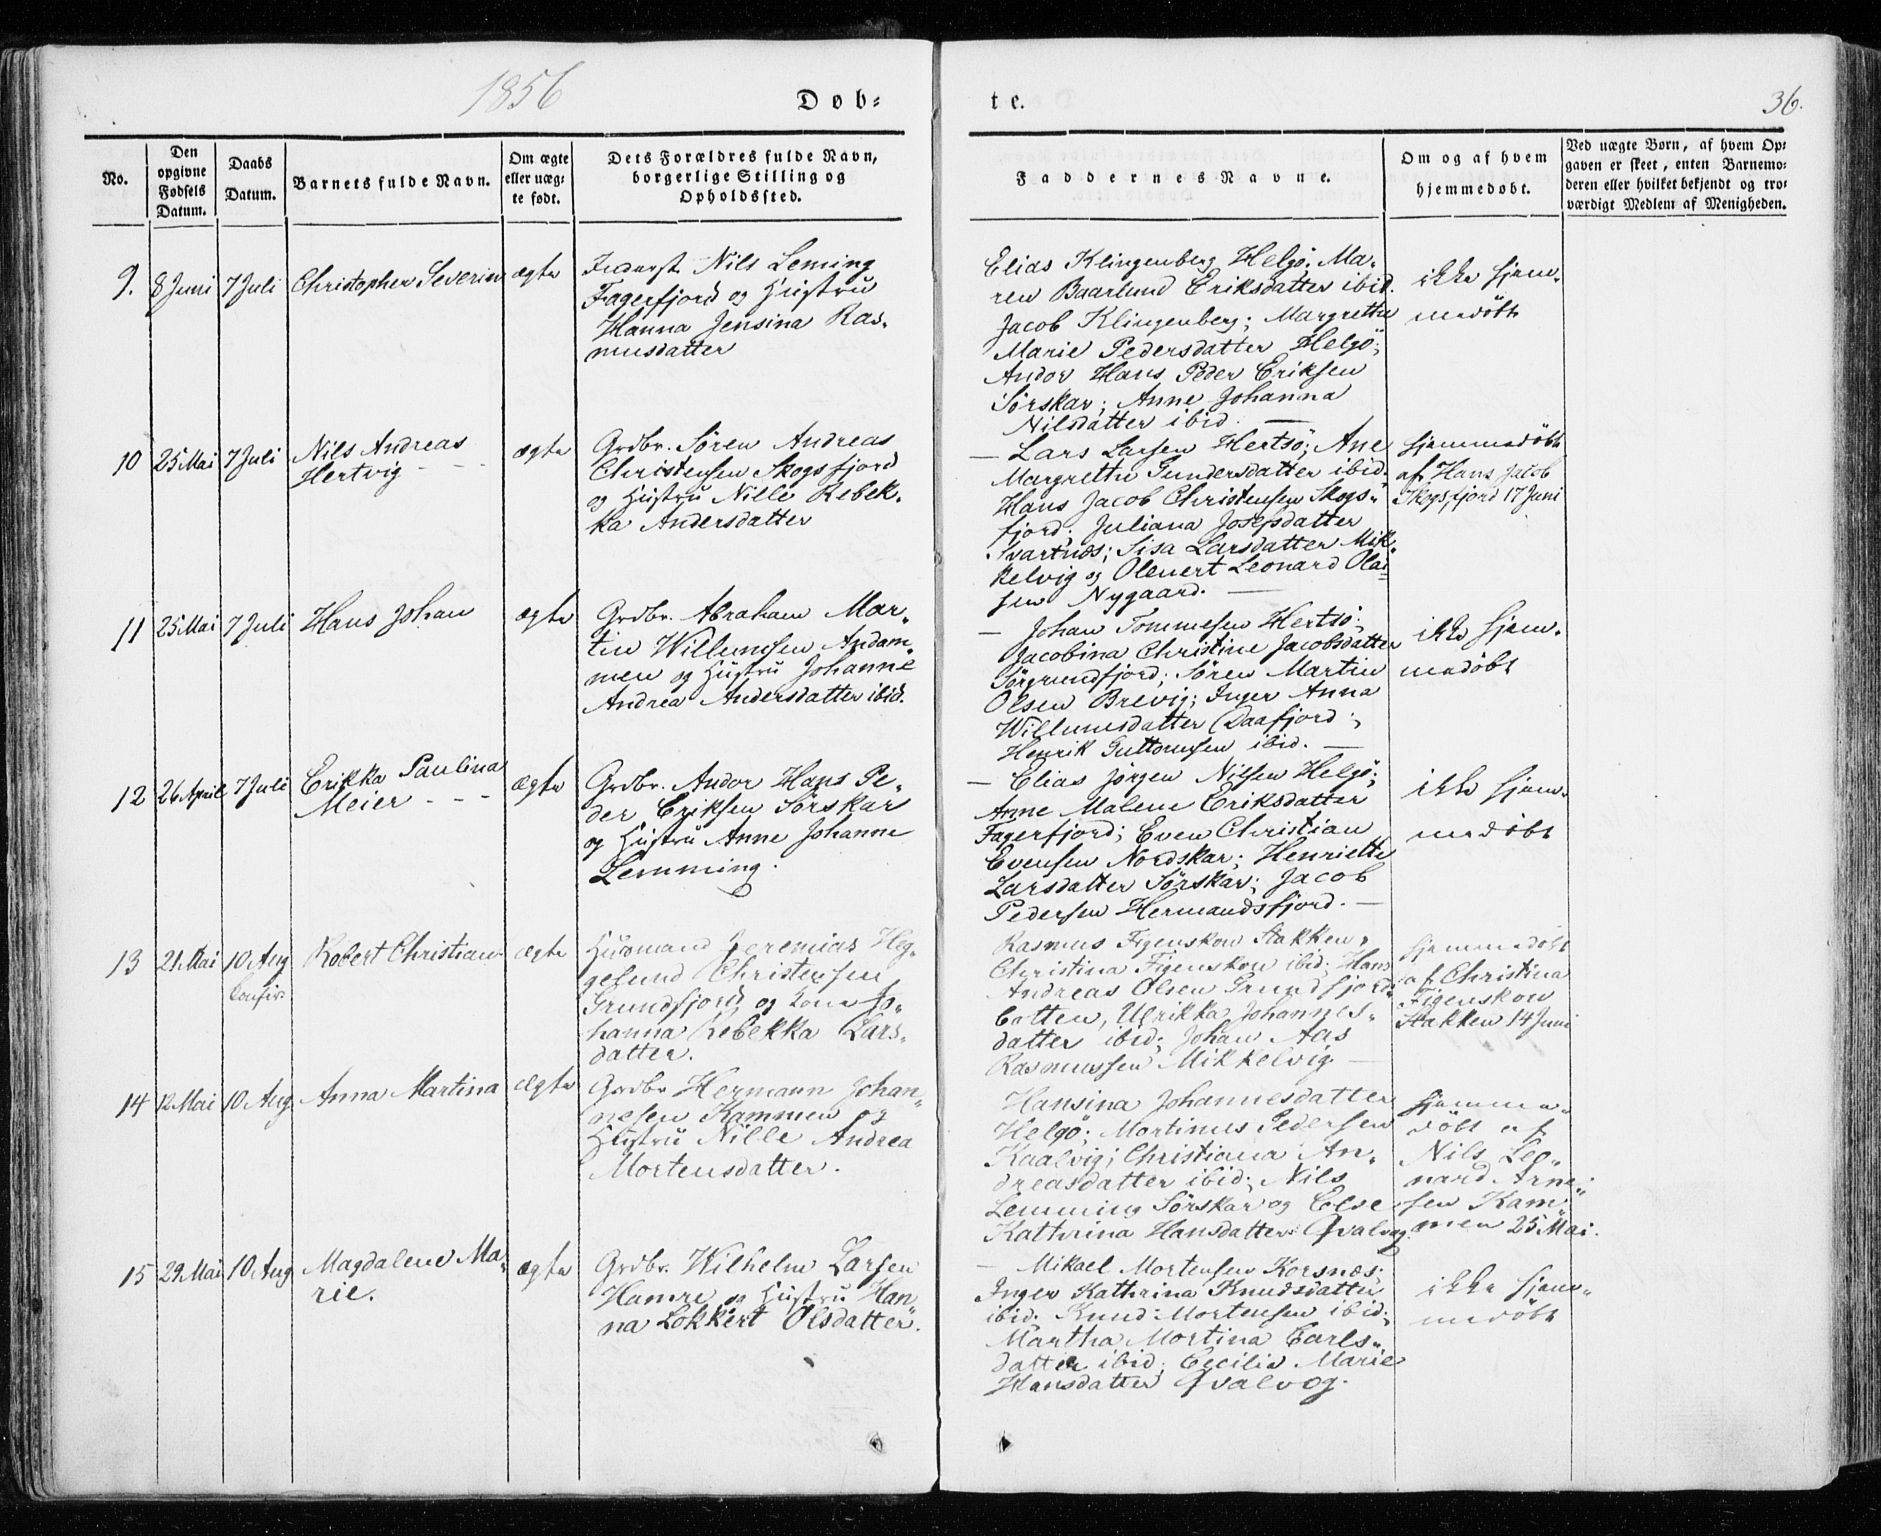 1856
Døb-
te.
36.
No.
Den
opgivne
Fødsels
Datum.
Daabs
Datum.
Barnets fulde Navn.
Om ægte
eller uæg-
te født.
Dets Forældres fulde Navn,
borgerlige Stilling og
Opholdssted.
Faddernes Navne.
Om og af hvem
hjemmedøbt.
Ved uægte Børn, af hvem Op-
gaven er skeet, enten Barnemo-
deren eller hvilket bekjendt og tro-
værdigt Medlem af Menigheden.
9. 8 Juni 7 Juli Christopher Severin ægte
Nils Leming
Fagerfjord og Hustru
Hanna Jensina Ras-
musdatter
Elias Klingenberg Helgö; Ma-
ren Baarlund Eriksdatter ibid.
Jacob Klingenberg; Margrethe
Marie Pedersdatter Helgö;
Andor Hans Peder Eriksen
Sörskar; Anne Johanna
Nilsdatter ibid. —
ikke hjem-
medöbt
10 25 Mai 7 Juli Nils Andreas
Hertvig - - -
ægte
Grdbr. Sören Andreas
Christensen Skogsfjord
og Hustru Nille Rebek-
ka Andersdatter
— Lars Larsen Hertsö; Ane
Margrethe Gundersdatter ibid.
Hans Jacob Christensen Skogs-
fjord; Juliana Josepsdatter
Svartnæs; Sisa Larsdatter Mik-
kelvig og Olenert Leonard Olai-
sen Nygaard. —
hjemmedöbt
af Hans Jacob
Skogsfjord 17 Juni
11 25 Mai 7 Juli Hans Johan ægte
Grdbr. Abraham Mar-
tin Willumsen Andam-
men og Hustru Johanne
Andrea Andersdatter ibid.
— Johan Tommesen Hertsö;
Jacobina Christine Jacobsdatter
Sörgrundfjord; Sören Martin
Olsen Brevig; Inger Anna
Willumsdatter Daafjord;
Henrik Guttormsen ibid. —
ikke hjem-
medöbt
12 26 April 7 Juli Erikka Paulina
Meier - - -
ægte
Grdbr. Andor Hans Pe-
der Eriksen Sörskar
og Hustru Anne Johanne
Lemming.
— Elias Jörgen Nilsen Helgö;
Anne Malene Eriksdatter
Fagerfjord; Even Christian
Evensen Nordskar; Henriette
Larsdatter Sörskar; Jacob
Pedersen Hermandsfjord. —
ikke hjem-
medöbt
13 21 Mai 10 Aug Robert Christian ægte
Confir.
Husmand Jeremias Heg-
gelund Christensen
Grundfjord og Kone Jo-
hanna Rebekka Lars-
datter.
Rasmus Figenskou Stakken;
Christina Figenskou ibid; Hans
Andreas Olsen Grundfjord-
botten, Ulrikka Johannes-
datter ibid; Johan Aas
Rasmussen Mikkelvig —
hjemmedöbt
af Christina
Figenskou
Stakken 14 Juni
14 12 Mai 10 Aug. Anna Martina ægte
Grdbr Hermann Johan-
nesen Kammen og
Hustru Nille Andrea
Mortensdatter.
Hansina Johannesdatter
Helgö; Mortinus Pedersen
Kaalvig; Christiana An-
dreasdatter ibid; Nils
Lemming Sörskar og Else
Kathrina Hansdatter Qvalvog.
hjemme-
döbt af
Nils Leo-
nard Arne-
sen Kam-
men 25 Mai.
15 29 Mai 10 Aug Magdalene Ma-
rie.
ægte
Grdbr. Wilhelm Larsen
Hamre og Hustru Han-
na Lokkert Olsdatter.
— Mikael Mortensen Korsnæs;
Inger Kathrina Knudsdatter
ibid. Knud Mortensen ibid;
Martha Mortina Carls-
datter ibid; Cecilie Marie
Hansdatter Qvalvog.
ikke hjem-
medöbt